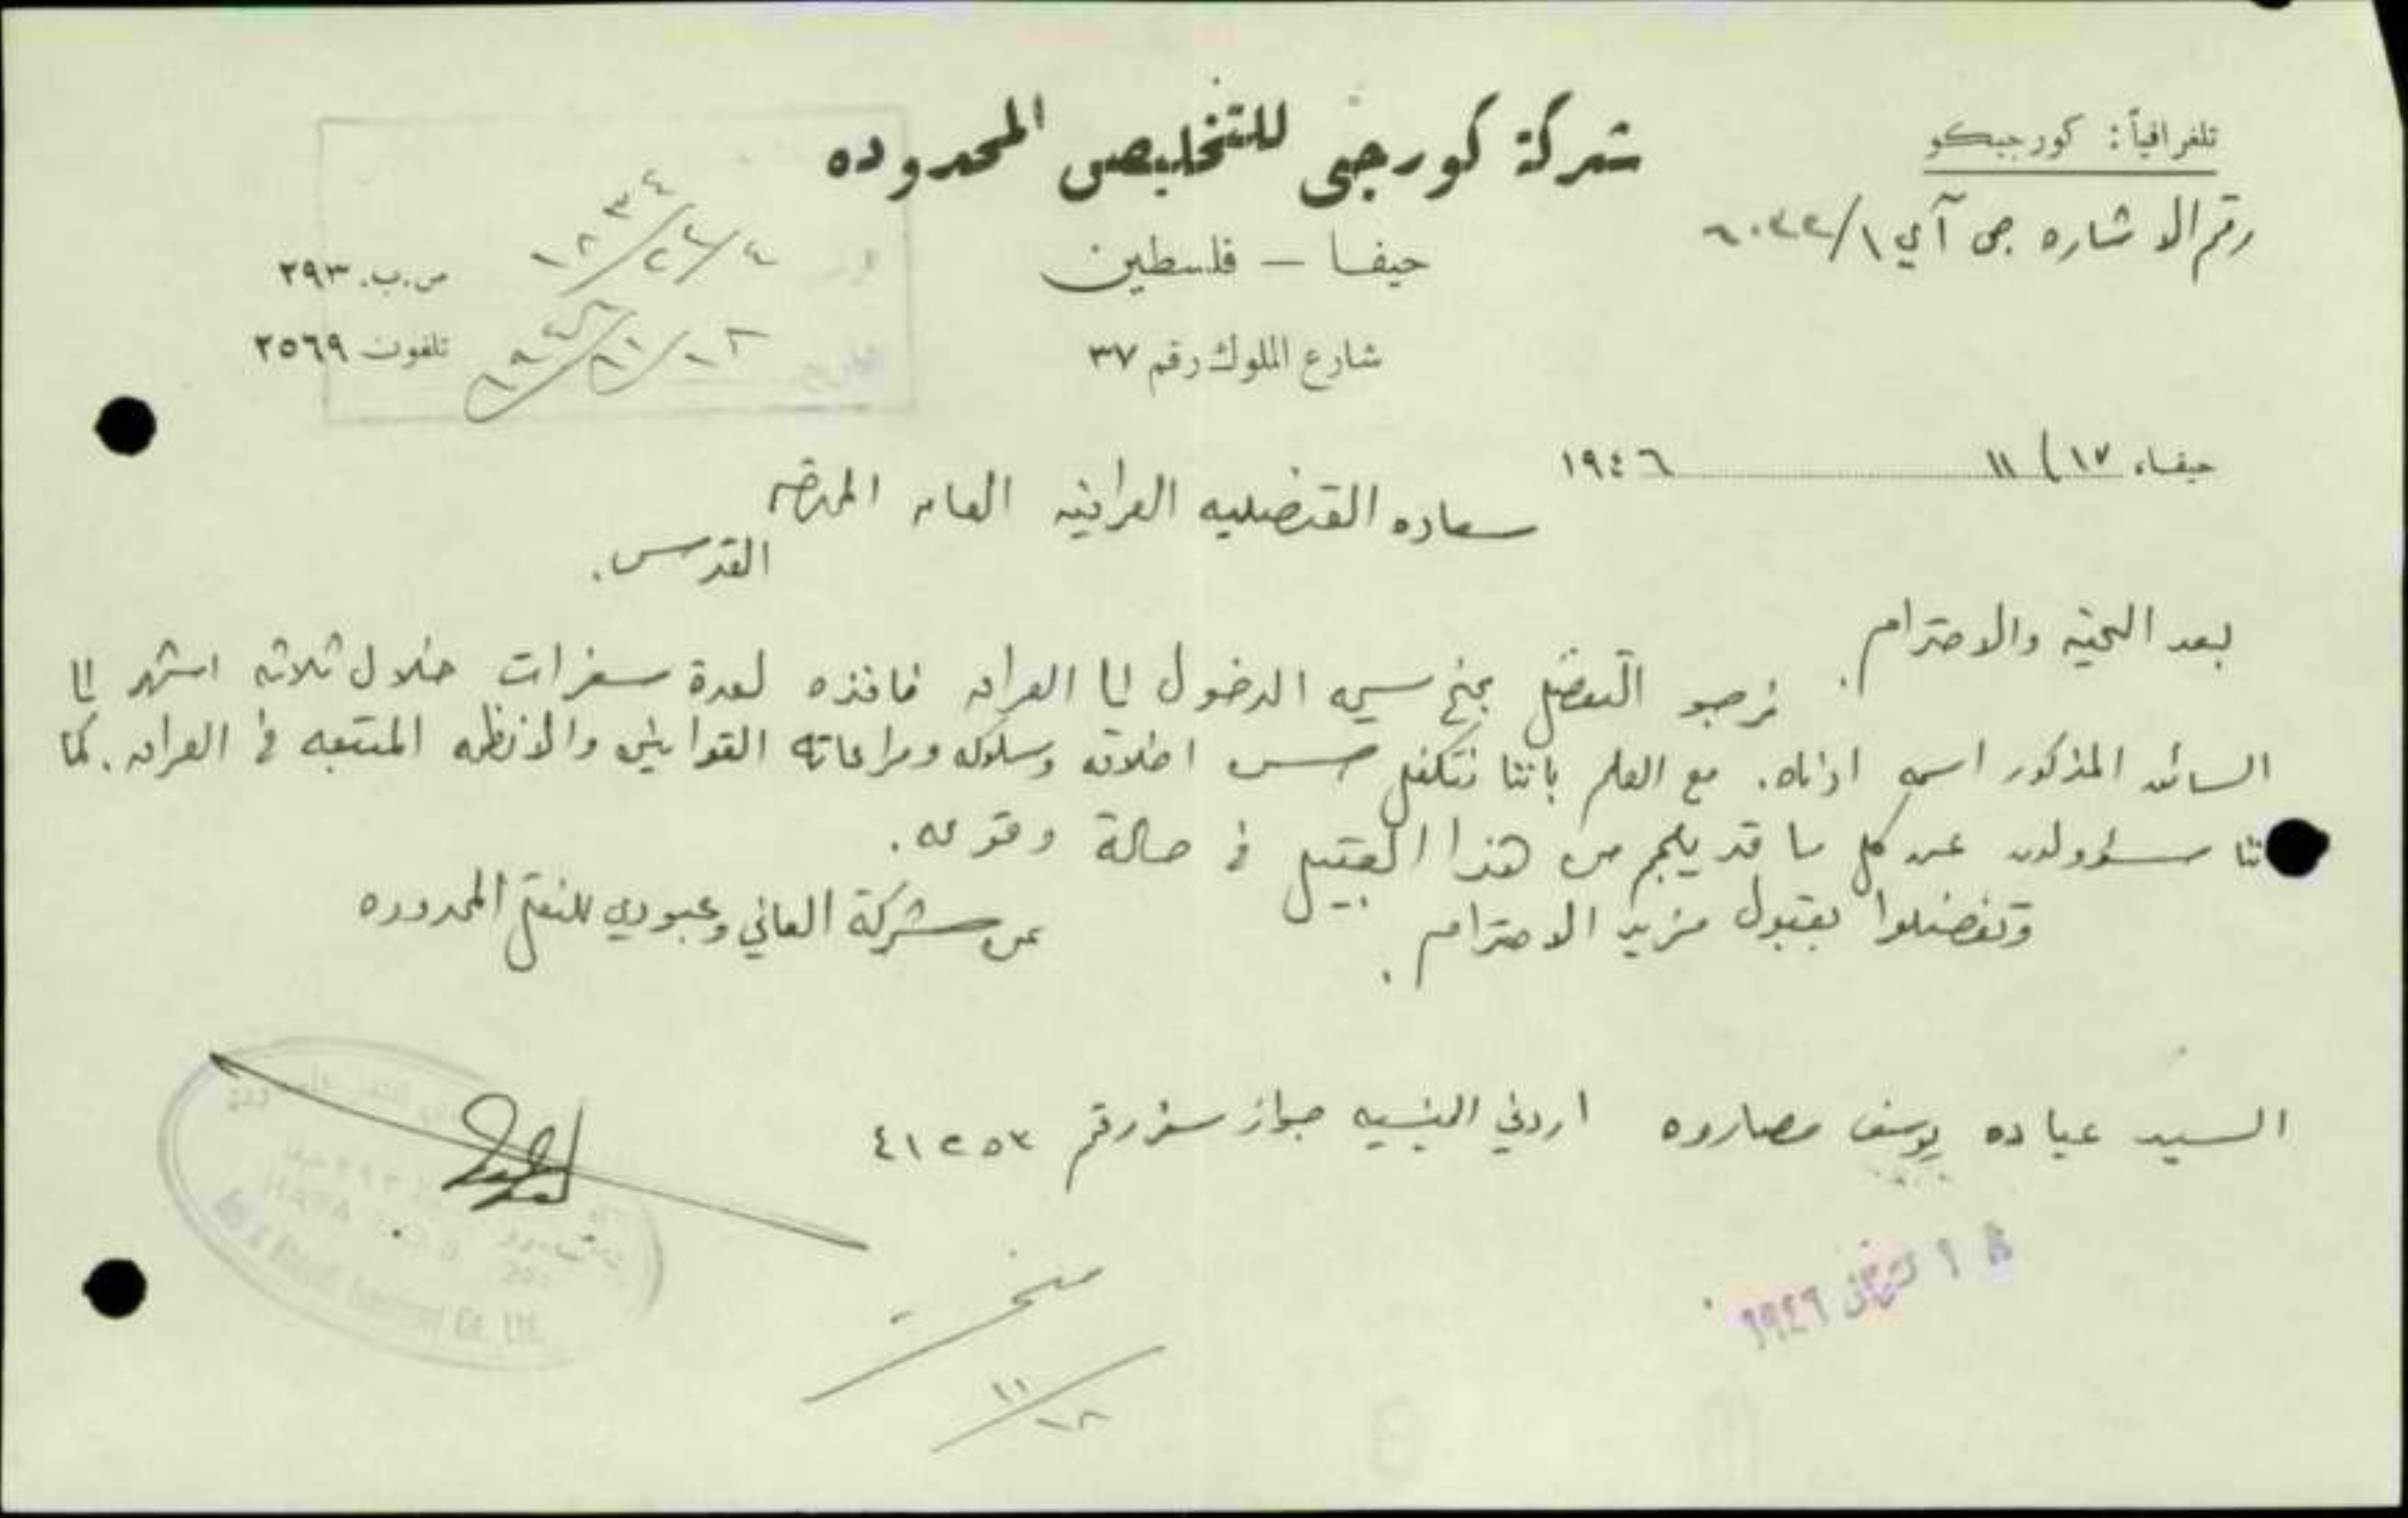 تلغرافياً: كورجيكو
شركة كورجي للتخليص المحدوده
رقم الاشاره جي آي ١/٦٠٣٢
حيفا – فلسطين
ص.ب. ٢٩٣
١٨٣٤
٤/٢٤
شارع الملوك رقم ٣٧
تلفون ٢٥٦٩
حيفا، ١٧/١١ ١٩٤٦
سعاده القنصليه العراقيه العامه المحترمه
القدس.
بعد التحيه والاحترام.
نرجو التفضل بمنح سمه الدخول الى العراق نافذه لعدة سفرات خلال ثلاثه اشهر الى
السائق المذكور اسمه ادناه. مع العلم باننا نتكفل حسن اخلاقه وسلوكه ومراعاته القوانين والانظمه المتبعه في العراق. كما
اننا مسؤولون عن كل ما قد ينجم من هذا القبيل في حالة وقوعه.
وتفضلوا بقبول مزيد الاحترام.
عن شركة العاني وعبودي للنقل المحدوده
السيد عباده يوسف مصاروه اردني الجنسيه جواز سفر رقم ٤١٢٥٣
منحت
١١/١٨